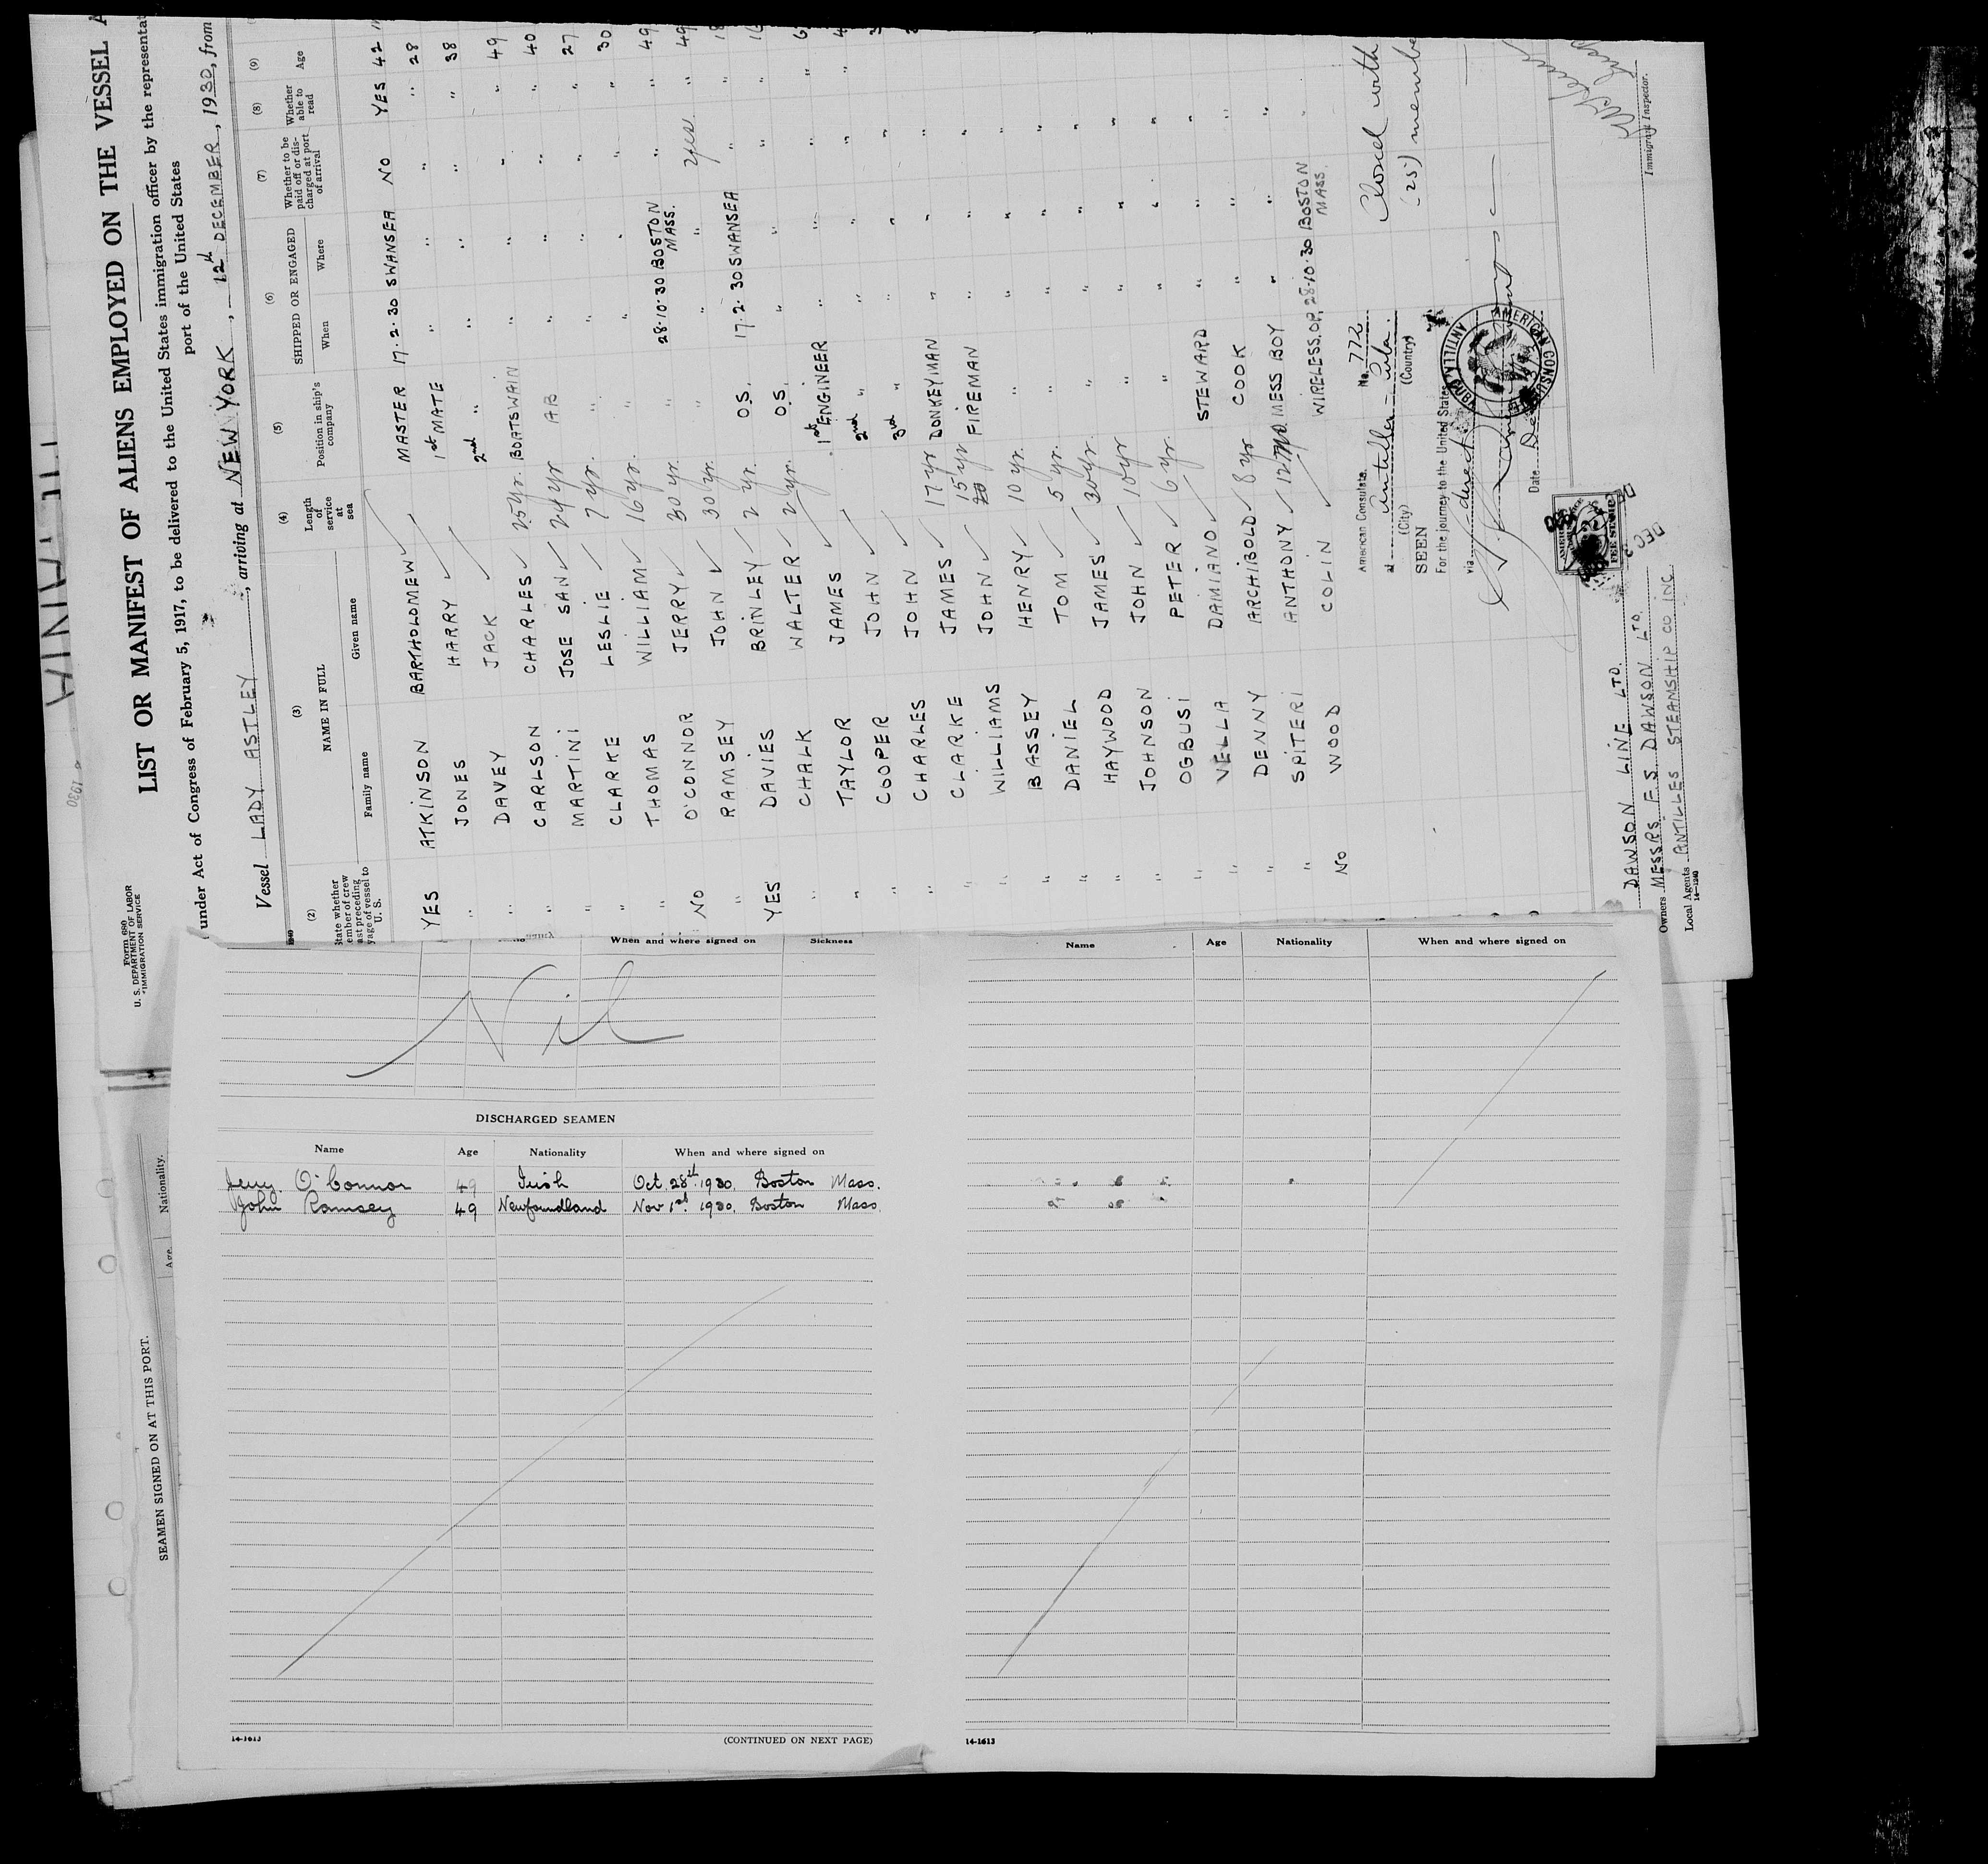 LIST OR MANIFEST OF ALIENS EMPLOYED ON THE VESSEL A
under Act of Congress of February 5, 1917, to be delivered to the United States immigration officer by the representat
port of the United States
Vessel LADY ASTLEY, arriving at NEW YORK, 12th DECEMBER, 1930, from
Form 680
U. S. DEPARTMENT OF LABOR
IMMIGRATION SERVICE
(2) (3) (4) (5) (6) (7) (8) (9)
NAME IN FULL Length of service at sea Position in ship's company SHIPPED OR ENGAGED Whether to be paid off or discharged at port of arrival Whether able to read Age
Family name Given name When Where
YES ATKINSON BARTHOLOMEW MASTER 17.2.30 SWANSEA NO YES 42
" JONES HARRY 1st MATE " " " " 28
" DAVEY JACK 2nd " " " " " 38
" CARLSON CHARLES 25 yr. BOATSWAIN " " " " 49
" MARTINI JOSE SAN 24 yr AB " " " " 40
" CLARKE LESLIE 7 yr. " " " " " 27
" THOMAS WILLIAM 16 yr. " " " " " 30
NO O'CONNOR JERRY 30 yr. " 28.10.30 BOSTON MASS. " " 49
" RAMSEY JOHN 30 yr. " " " Yes " 49
YES DAVIES BRINLEY 2 yr. O.S. 17.2.30 SWANSEA " "
" CHALK WALTER 2 yr. O.S. " " " "
" TAYLOR JAMES 1st ENGINEER " " " "
" COOPER JOHN 2nd " " " " "
" CHARLES JOHN 3rd " " " "
" CLARKE JAMES 17 yr DONKEYMAN " " "
" WILLIAMS JOHN 15 yr FIREMAN " " "
" BASSEY HENRY 10 yr. " " " "
" DANIEL TOM 5 yr. " " " "
" HAYWOOD JAMES 30 yr. " " " "
" JOHNSON JOHN 10 yr " " " "
" OGBUSI PETER 6 yr. " " " "
" VELLA DAMIANO STEWARD " " "
" DENNY ARCHIBOLD 8 yr COOK " " "
" SPITERI ANTHONY 12 mo. MESS BOY " " "
NO WOOD COLIN WIRELESS.OP. 28.10.30 BOSTON MASS. "
Closed with
(25) membe
American Consulate, No. 772
at Antilla - Cuba.
(City) (Country)
SEEN
For the journey to the United States
via direct
Date De
AMERICAN CONSULATE
ANTILLA, CUBA
FEE STAMP
DEC
DAWSON LINE LTD.
Owners MESSRS F.S DAWSON LTD.
Local Agents ANTILLES STEAMSHIP CO INC.
14-1240
Immigrant Inspector.
When and where signed on Sickness
Nil
DISCHARGED SEAMEN
Name Age Nationality When and where signed on
Jerry O'Connor 49 Irish Oct. 28th 1930. Boston Mass.
John Ramsey 49 Newfoundland Nov 1st 1930. Boston Mass.
14-1613 (CONTINUED ON NEXT PAGE)
Name Age Nationality When and where signed on
14-1613
SEAMEN SIGNED ON AT THIS PORT.
Age. Nationality.
1930